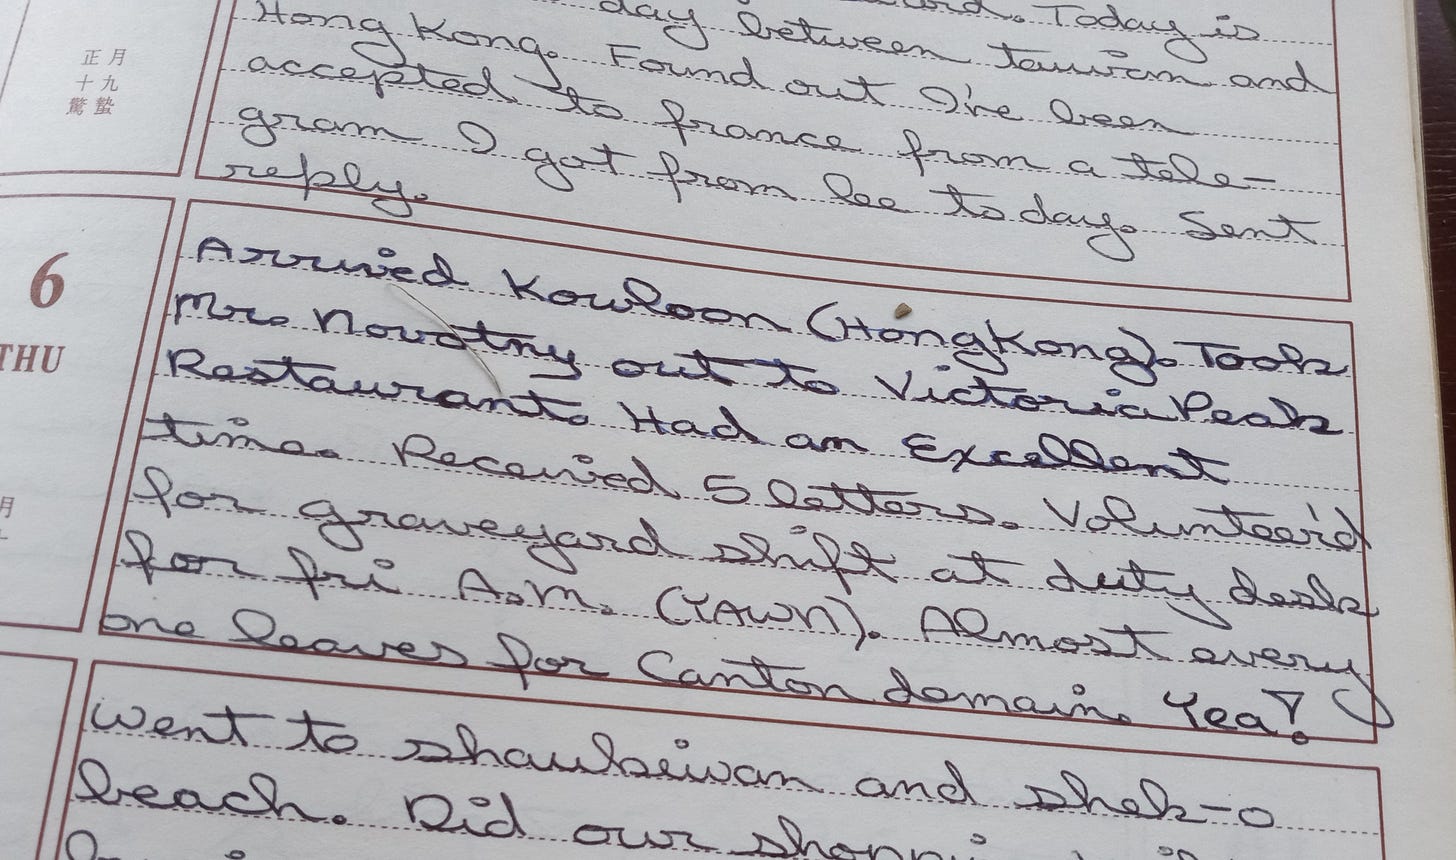 Today is
day between taiwan and
Hong Kong. Found out I've been
accepted to france from a tele-
gram I got from lee today. Sent
reply.
正月
十九
驚蟄
6
THU
Arrived Kowloon (Hong Kong). Took
Mr. Novotny out to Victoria Peak
Restaurant. Had an Excellent
time. Received 5 letters. Volunteer'd
for graveyard shift at duty desk
for fri A.M. (YAWN). Almost every
one leaves for Canton domain. Yea!
月
went to shaukiwan and shek-o
beach. Did our